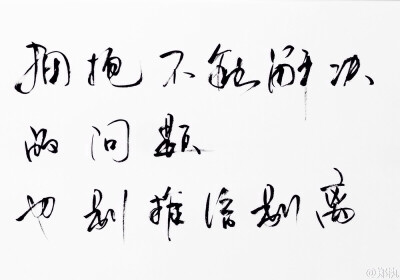 拥抱不能解决
的问题
也别推给别离